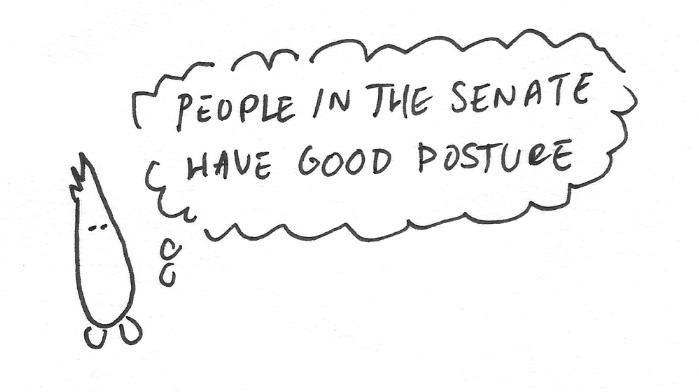 PEOPLE IN THE SENATE
HAVE GOOD POSTURE